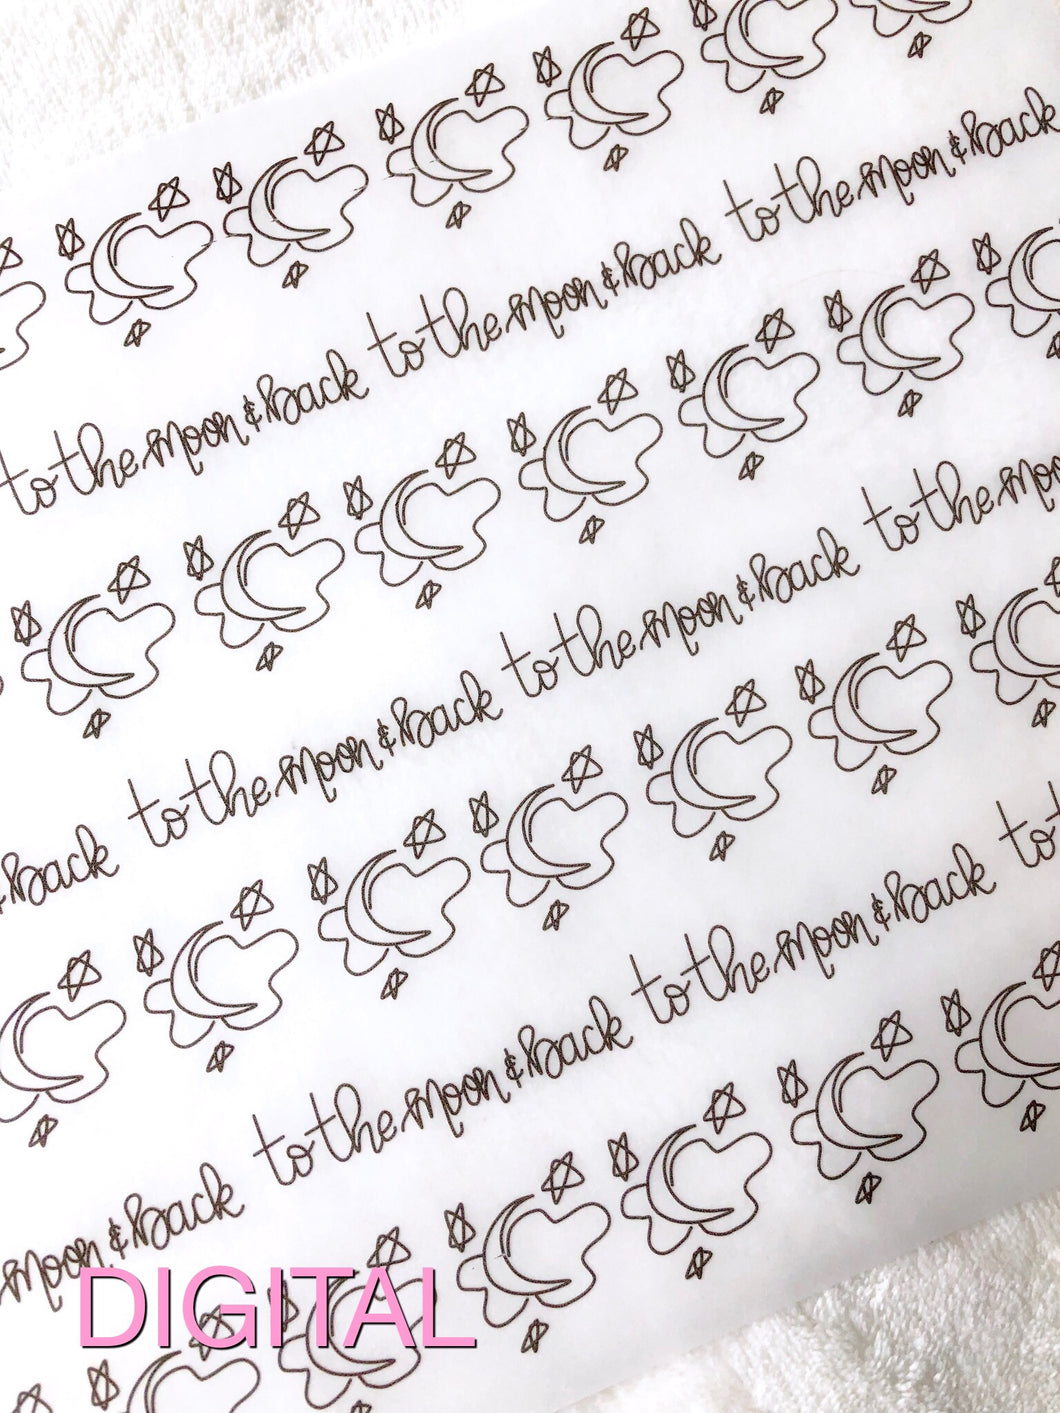 to the moon & Back to the moon & Back to the moon & Back
& Back to the moon & Back to the moon & Back to the moo
moon & Back to the moon & Back to the moon & Back to t
DIGITAL